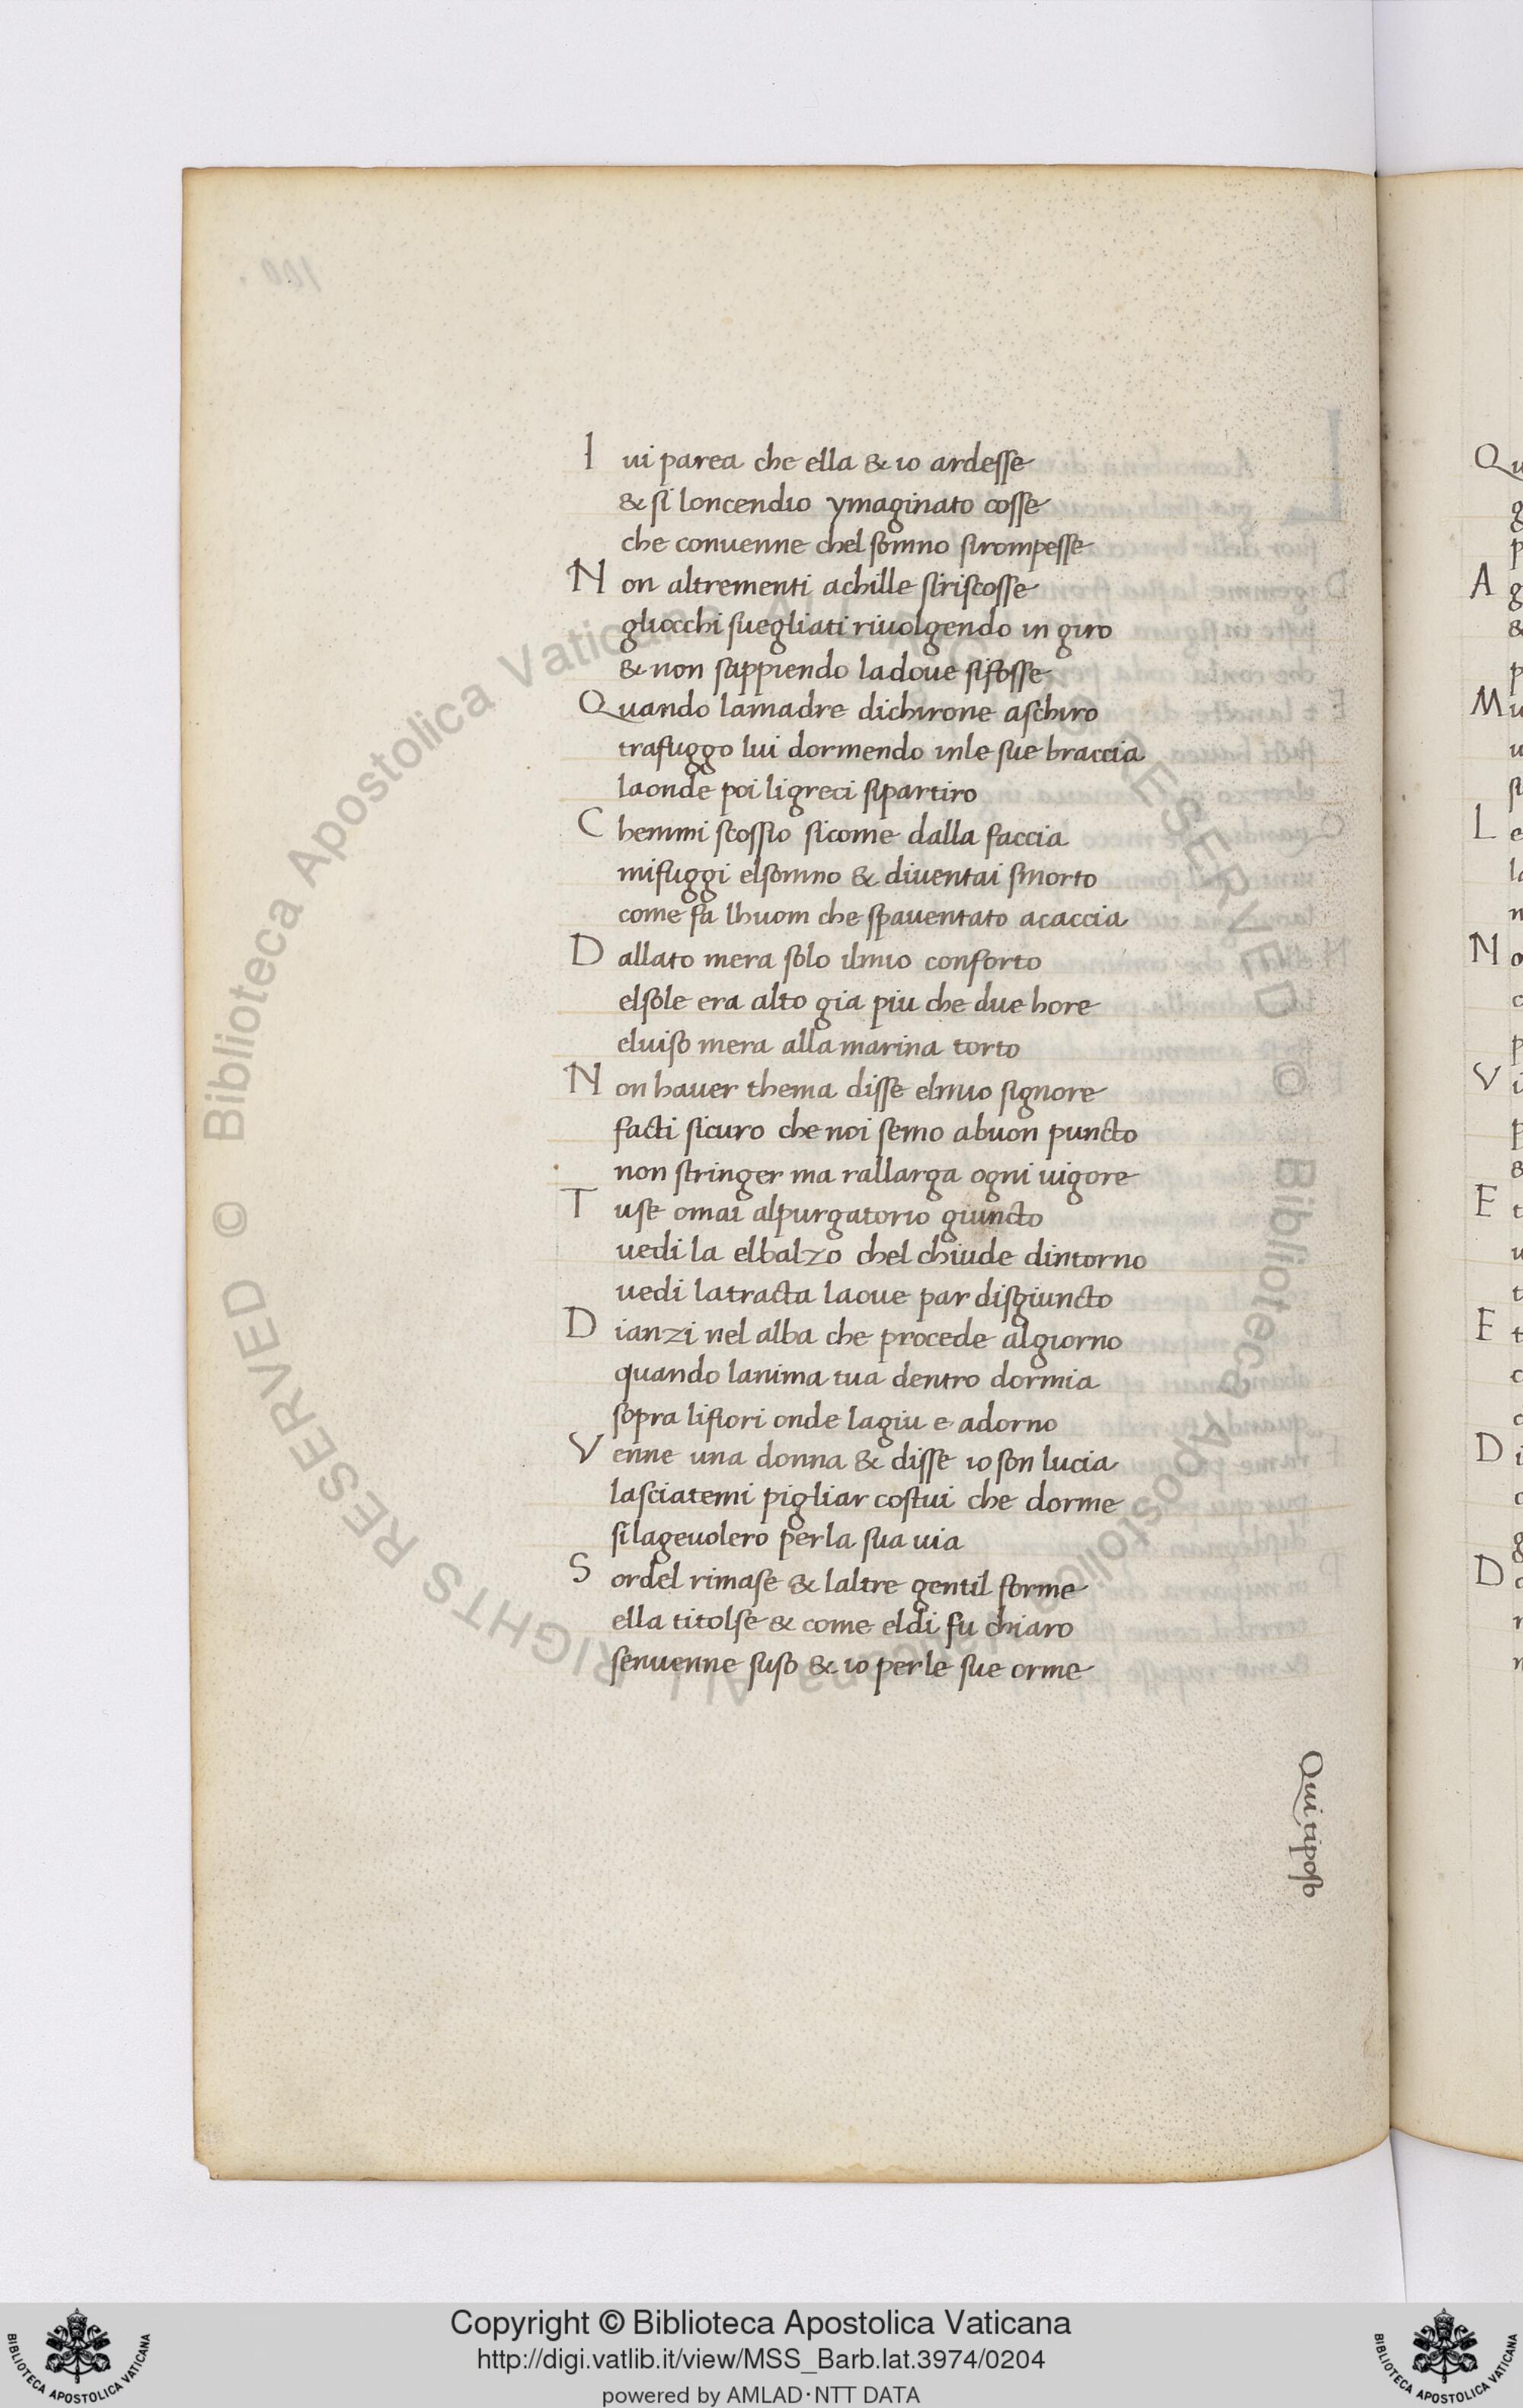 I ui parea che ella & io ardesse
& si loncendio ymaginato cosse
che conuenne chel somno sirompesse
N on altrementi achille siriscosse
gliocchi suegliati riuolgendo in giro
& non sappiendo ladoue sifosse
Quando lamadre dichirone aschiro
trafuggo lui dormendo inle sue braccia
laonde poi ligreci sipartiro
C hemmi scossio sicome dalla faccia
mifuggi elsomno & diuentai smorto
come fa lhuom che spauentato acaccia
D allato mera solo ilmio conforto
elsole era alto gia piu che due hore
eluiso mera alla marina torto
N on hauer thema disse elmio signore
facti sicuro che noi semo abuon puncto
non stringer ma rallarga ogni uigore
T use omai alpurgatorio giuncto
uedi la elbalzo chel chiude dintorno
uedi latracta laoue par disgiuncto
D ianzi nel alba che procede algiorno
quando lanima tua dentro dormia
sopra lifiori onde lagiu e adorno
V enne una donna & disse io son lucia
lasciatemi pigliar costui che dorme
silageuolero perla sua uia
S ordel rimase & laltre gentil forme
ella titolse & come eldi fu chiaro
senuenne suso & io perle sue orme
Qui tiposo
Copyright © Biblioteca Apostolica Vaticana
http://digi.vatlib.it/view/MSS_Barb.lat.3974/0204
powered by AMLAD·NTT DATA